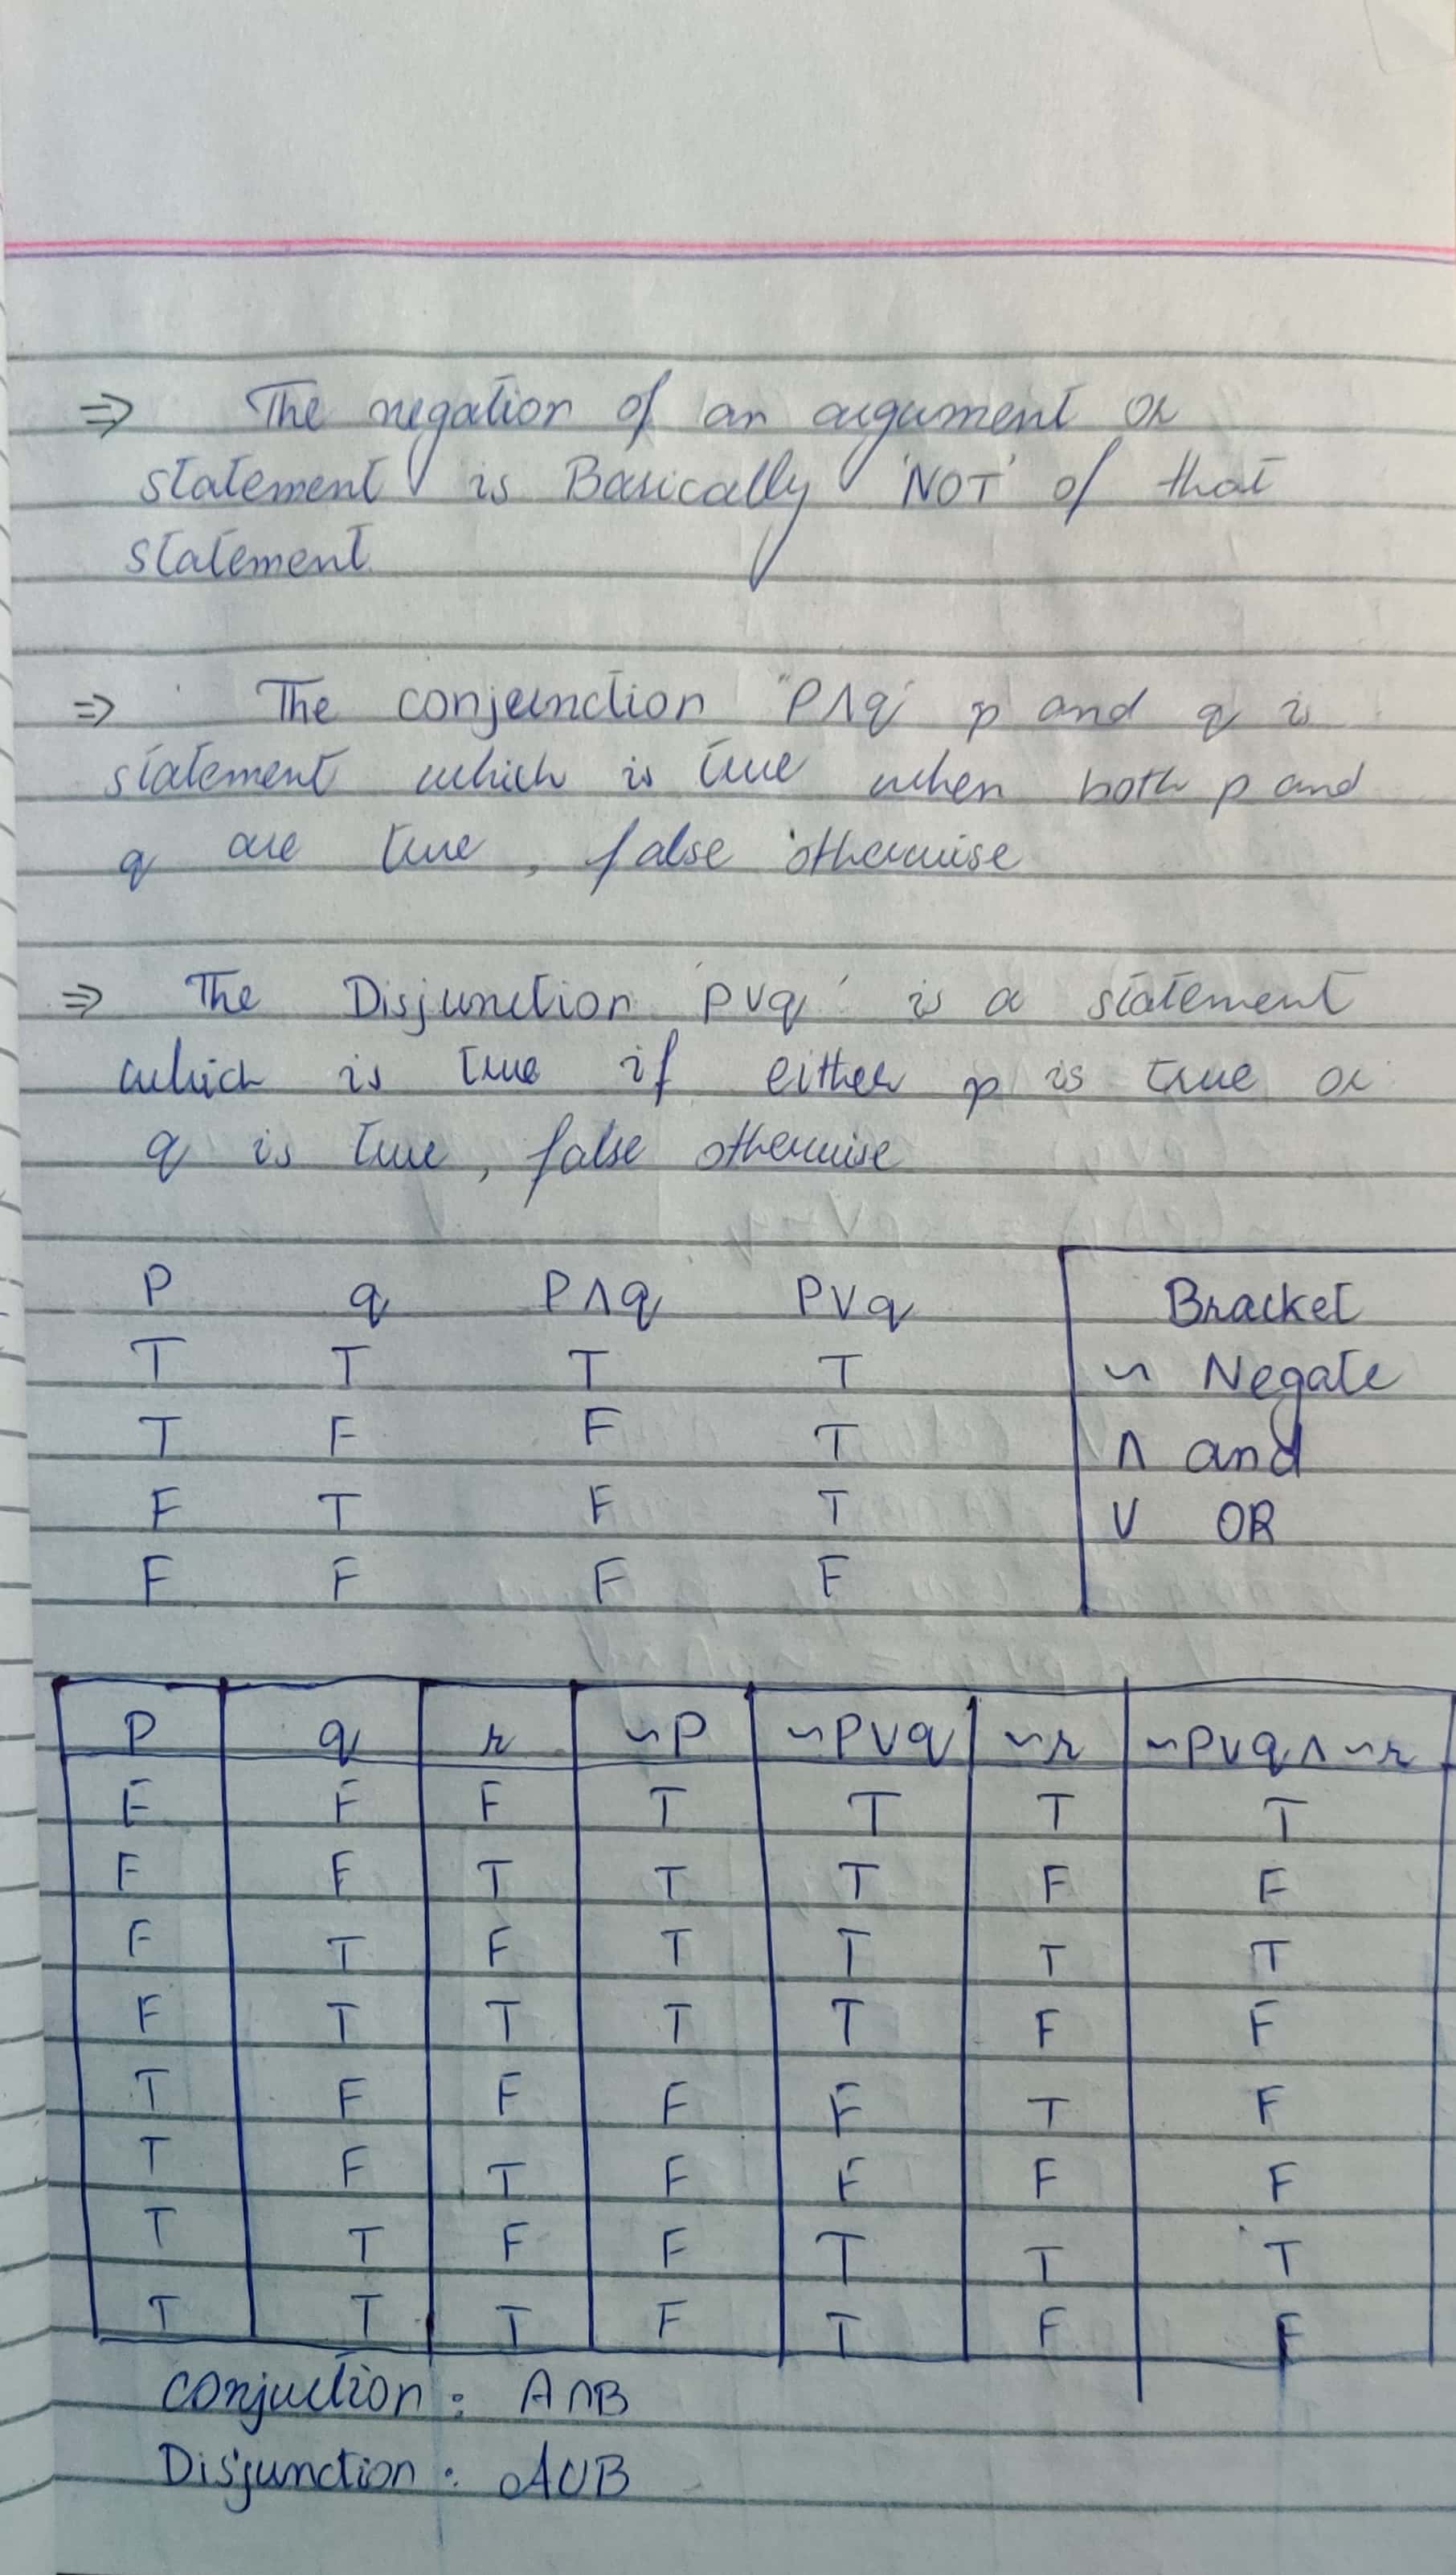 ⇒ The negation of an argument or
statement is Basically 'NOT' of that
statement
⇒ The conjunction "P∧q" p and q is
statement which is true when both p and
q are true, false otherwise
⇒ The Disjunction 'p∨q' is a statement
which is true if either p is true or
q is true, false otherwise
P q P∧q P∨q
T T T T
T F F T
F T F T
F F F F
Bracket
~ Negate
∧ and
∨ OR
P q r ~P ~P∨q ~r ~P∨q∧~r
F F F T T T T
F F T T T F F
F T F T T T T
F T T T T F F
T F F F F T F
T F T F F F F
T T F F T T T
T T T F T F F
Conjuction : A∩B
Disjunction : A∪B